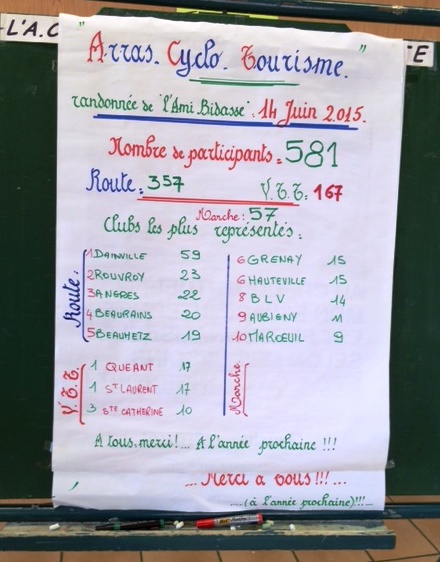 L'A.C
TE
" Arras. Cyclo. Tourisme. "
randonnée de "l'Ami Bidasse". 14 Juin 2015.
Nombre de participants: 581
Route: 357 V.T.T: 167
Marche: 57
Clubs les plus représentés:
Route:
1 DAINVILLE 59
2 ROUVROY 23
3 ANGRES 22
4 BEAURAINS 20
5 BEAUMETZ 19
6 GRENAY 15
6 HAUTEVILLE 15
8 BLV 14
9 AUBIGNY 11
10 MAROEUIL 9
V.T.T.
1 QUEANT 17
1 ST LAURENT 17
3 STE CATHERINE 10
Marche
A tous, merci!... A l'année prochaine !!!
... Merci a vous!!!...
....(à l'année prochaine)!!!...